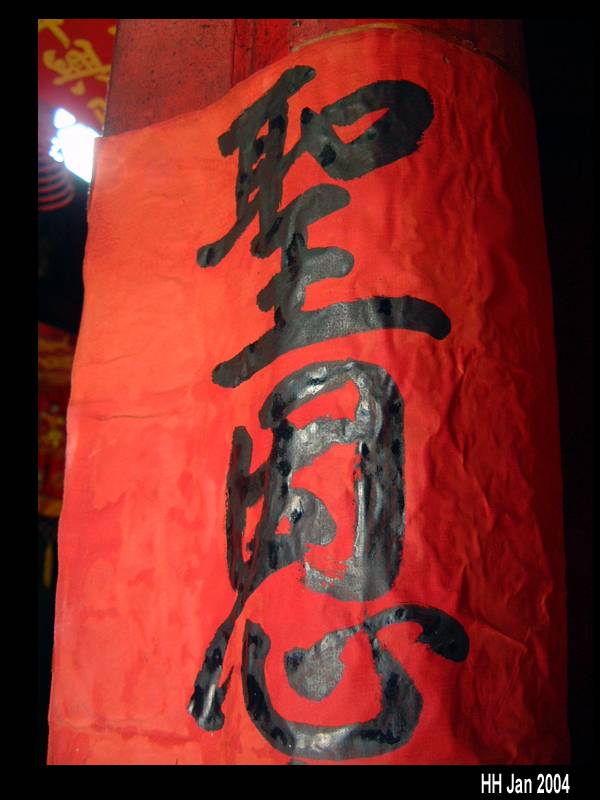 聖恩
HH Jan 2004